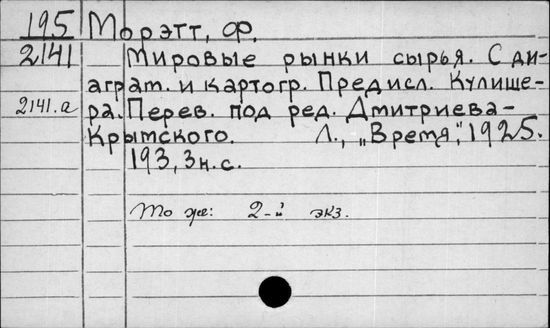 195 Морэтт, Ф.
2141 Мировые рынки сырья. С ди-
аграт. и картогр. Предисл. Кулише-
2141.а ра. Перев. под ред. Дмитриева-
Крымского. Л., „Время", 1925.
193, 3 н. с.
То же: 2-й экз.